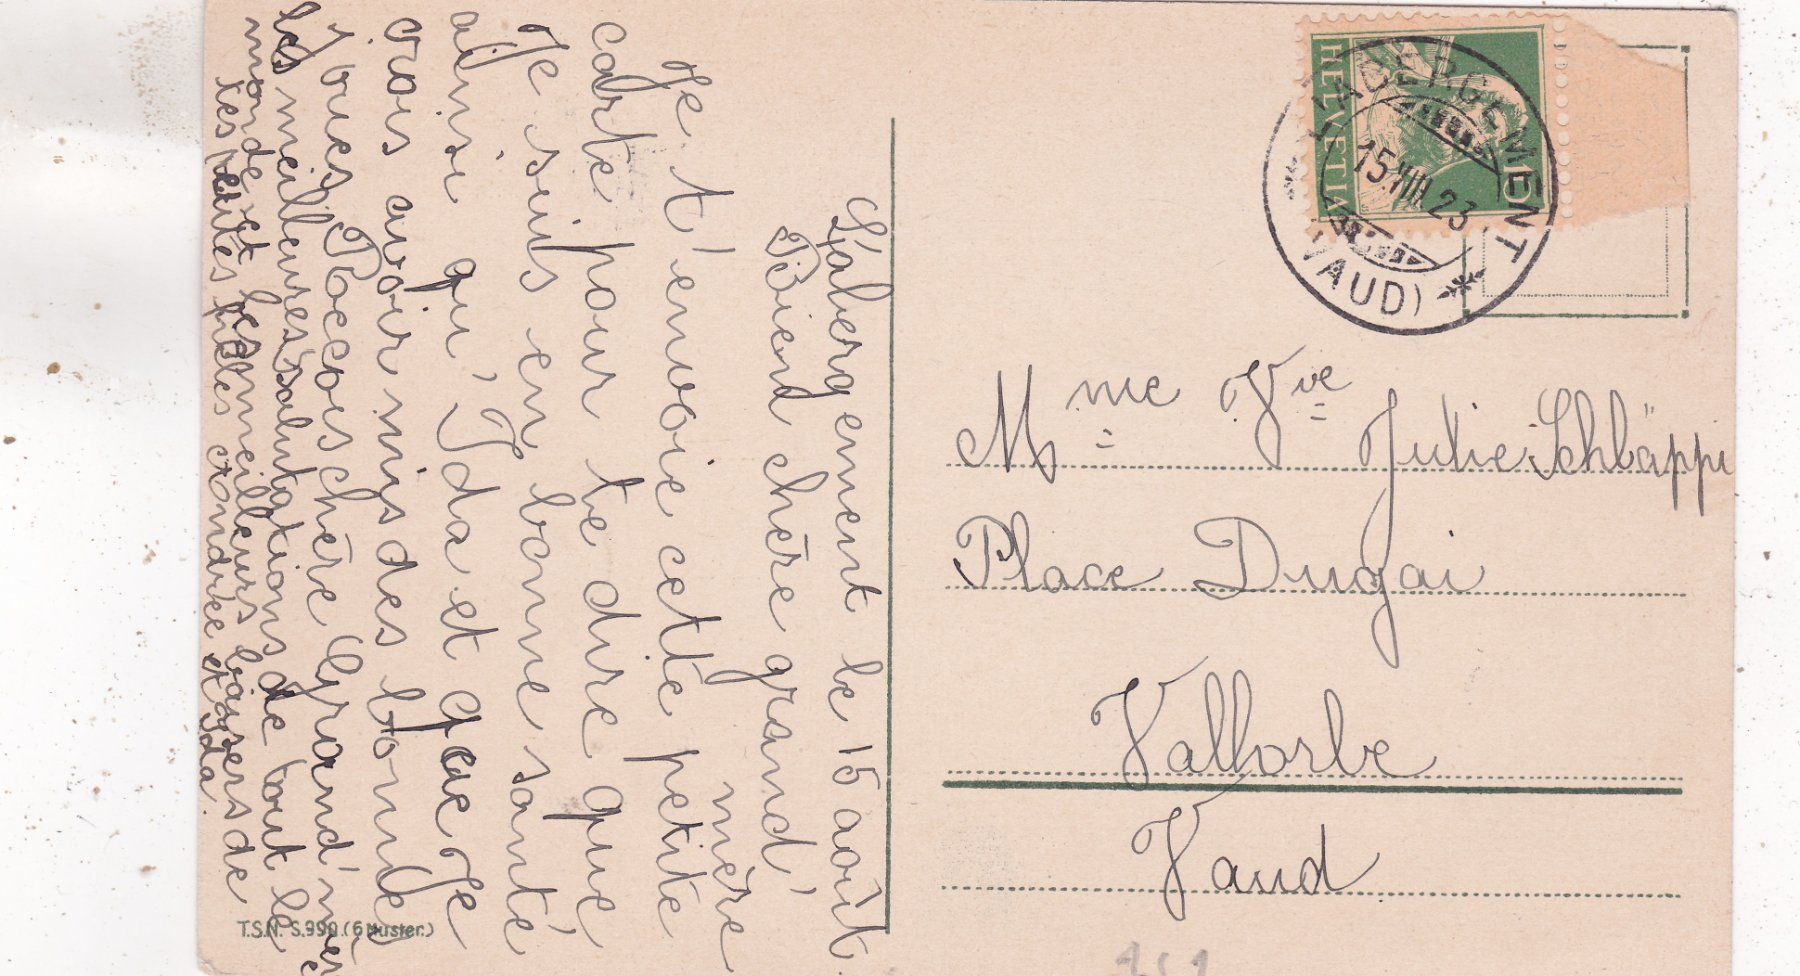 L'abergement le 15 août.
Biend chère grand'
mère
Je t'envoie cette petite
carte pour te dire que
Je suis en bonne santé
ainsi qu'Ida et que Je
crois avoir mis des bonnes
joues Recois chère Grand'mère
les meilleures salutations de tout le
monde et les meilleurs baisers de
tes petites filles Andrée et Ida.
T.S.N. S.990.(6 Muster.)
HELVETIA
L'ABERGEMENT
15.VIII.23.
(VAUD)
Mme Vve Julie Schläppi
Place Dugai
Vallorbe
Vaud